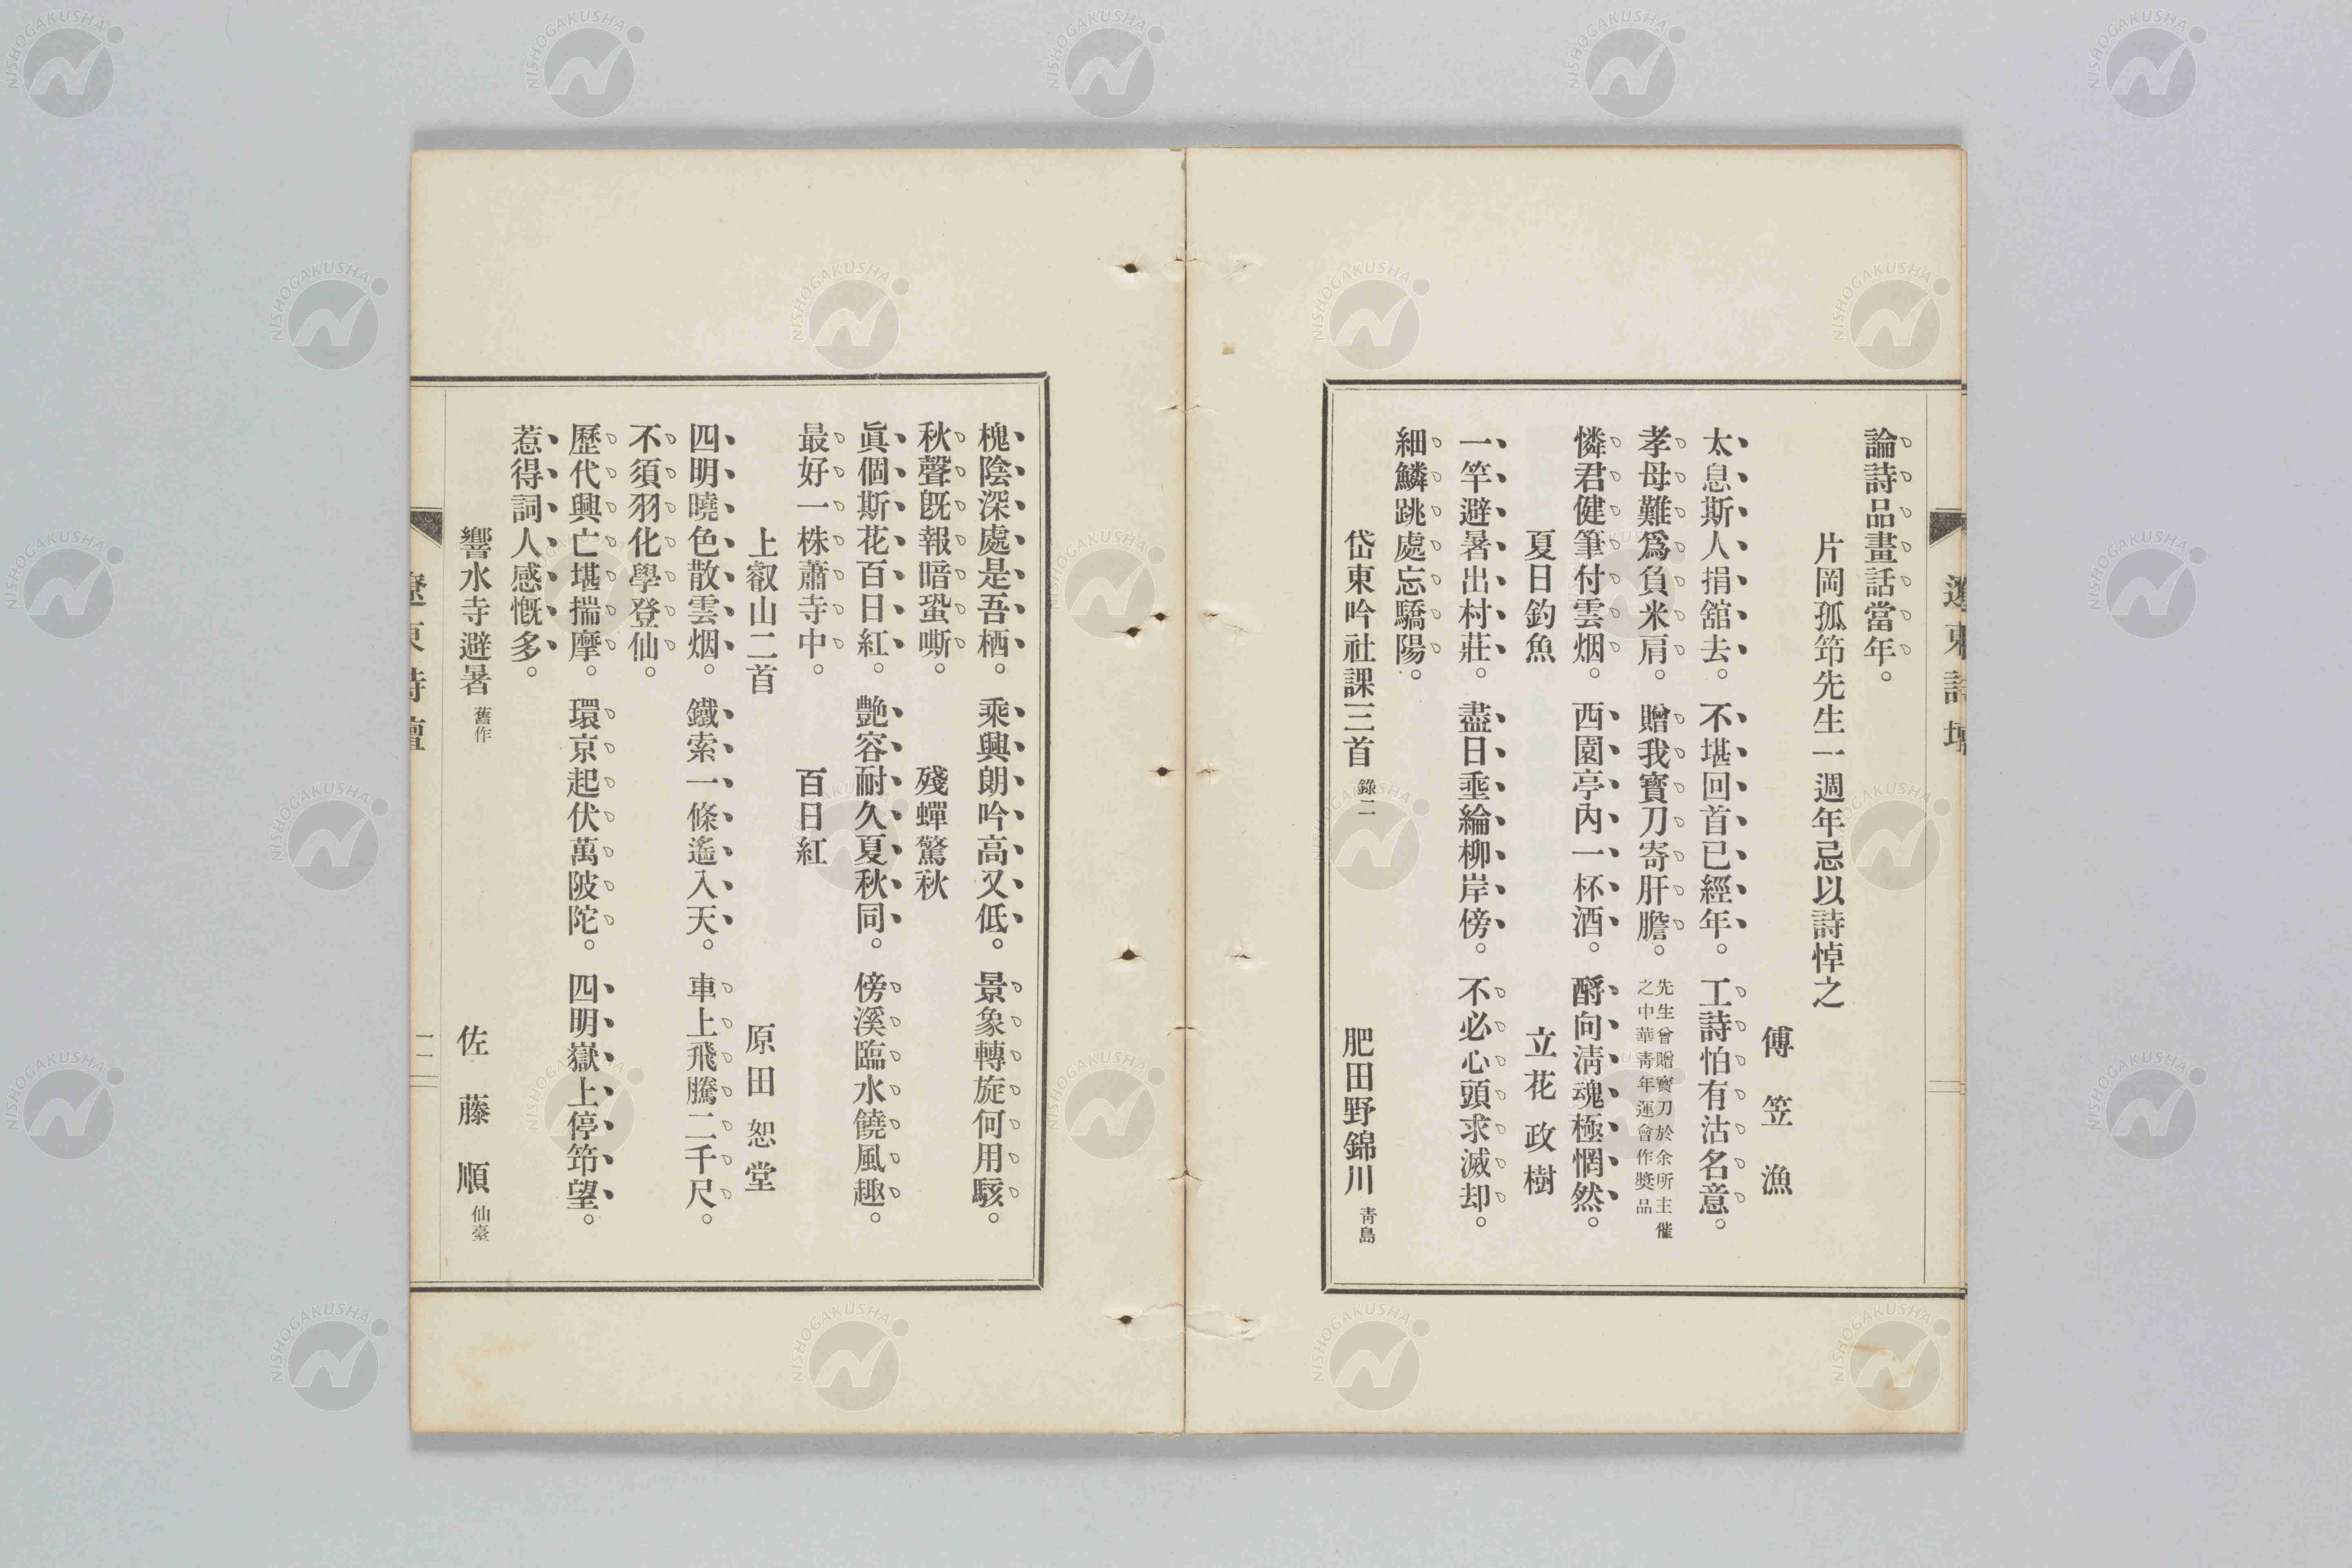 遼東詩壇
論詩品畫話當年。
片岡孤筇先生一週年忌以詩悼之
傅笠漁
太息斯人捐舘去。不堪回首已經年。工詩怕有沽名意。
孝母難爲負米肩。贈我寳刀寄肝膽。先生曾贈寳刀於余所主催之中華靑年運會作奬品
憐君健筆付雲烟。西園亭內一杯酒。酹向淸魂極惘然。
夏日釣魚 立花政樹
一竿避暑出村莊。盡日埀綸柳岸傍。不必心頭求滅却。
細鱗跳處忘驕陽。
岱東吟社課三首 錄二 肥田野錦川 靑島
槐陰深處是吾栖。乘興朗吟高又低。景象轉旋何用駭。
秋聲旣報暗蛩嘶。 殘蟬驚秋
眞個斯花百日紅。艶容耐久夏秋同。傍溪臨水饒風趣。
最好一株蕭寺中。 百日紅
上叡山二首 原田恕堂
四明曉色散雲烟。鐵索一條遙入天。車上飛騰二千尺。
不須羽化學登仙。
歷代興亡堪揣摩。環京起伏萬陂陀。四明嶽上停筇望。
惹得詞人感慨多。
響水寺避暑 舊作 佐藤順 仙臺
遼東詩壇
一一
NISHOGAKUSHA